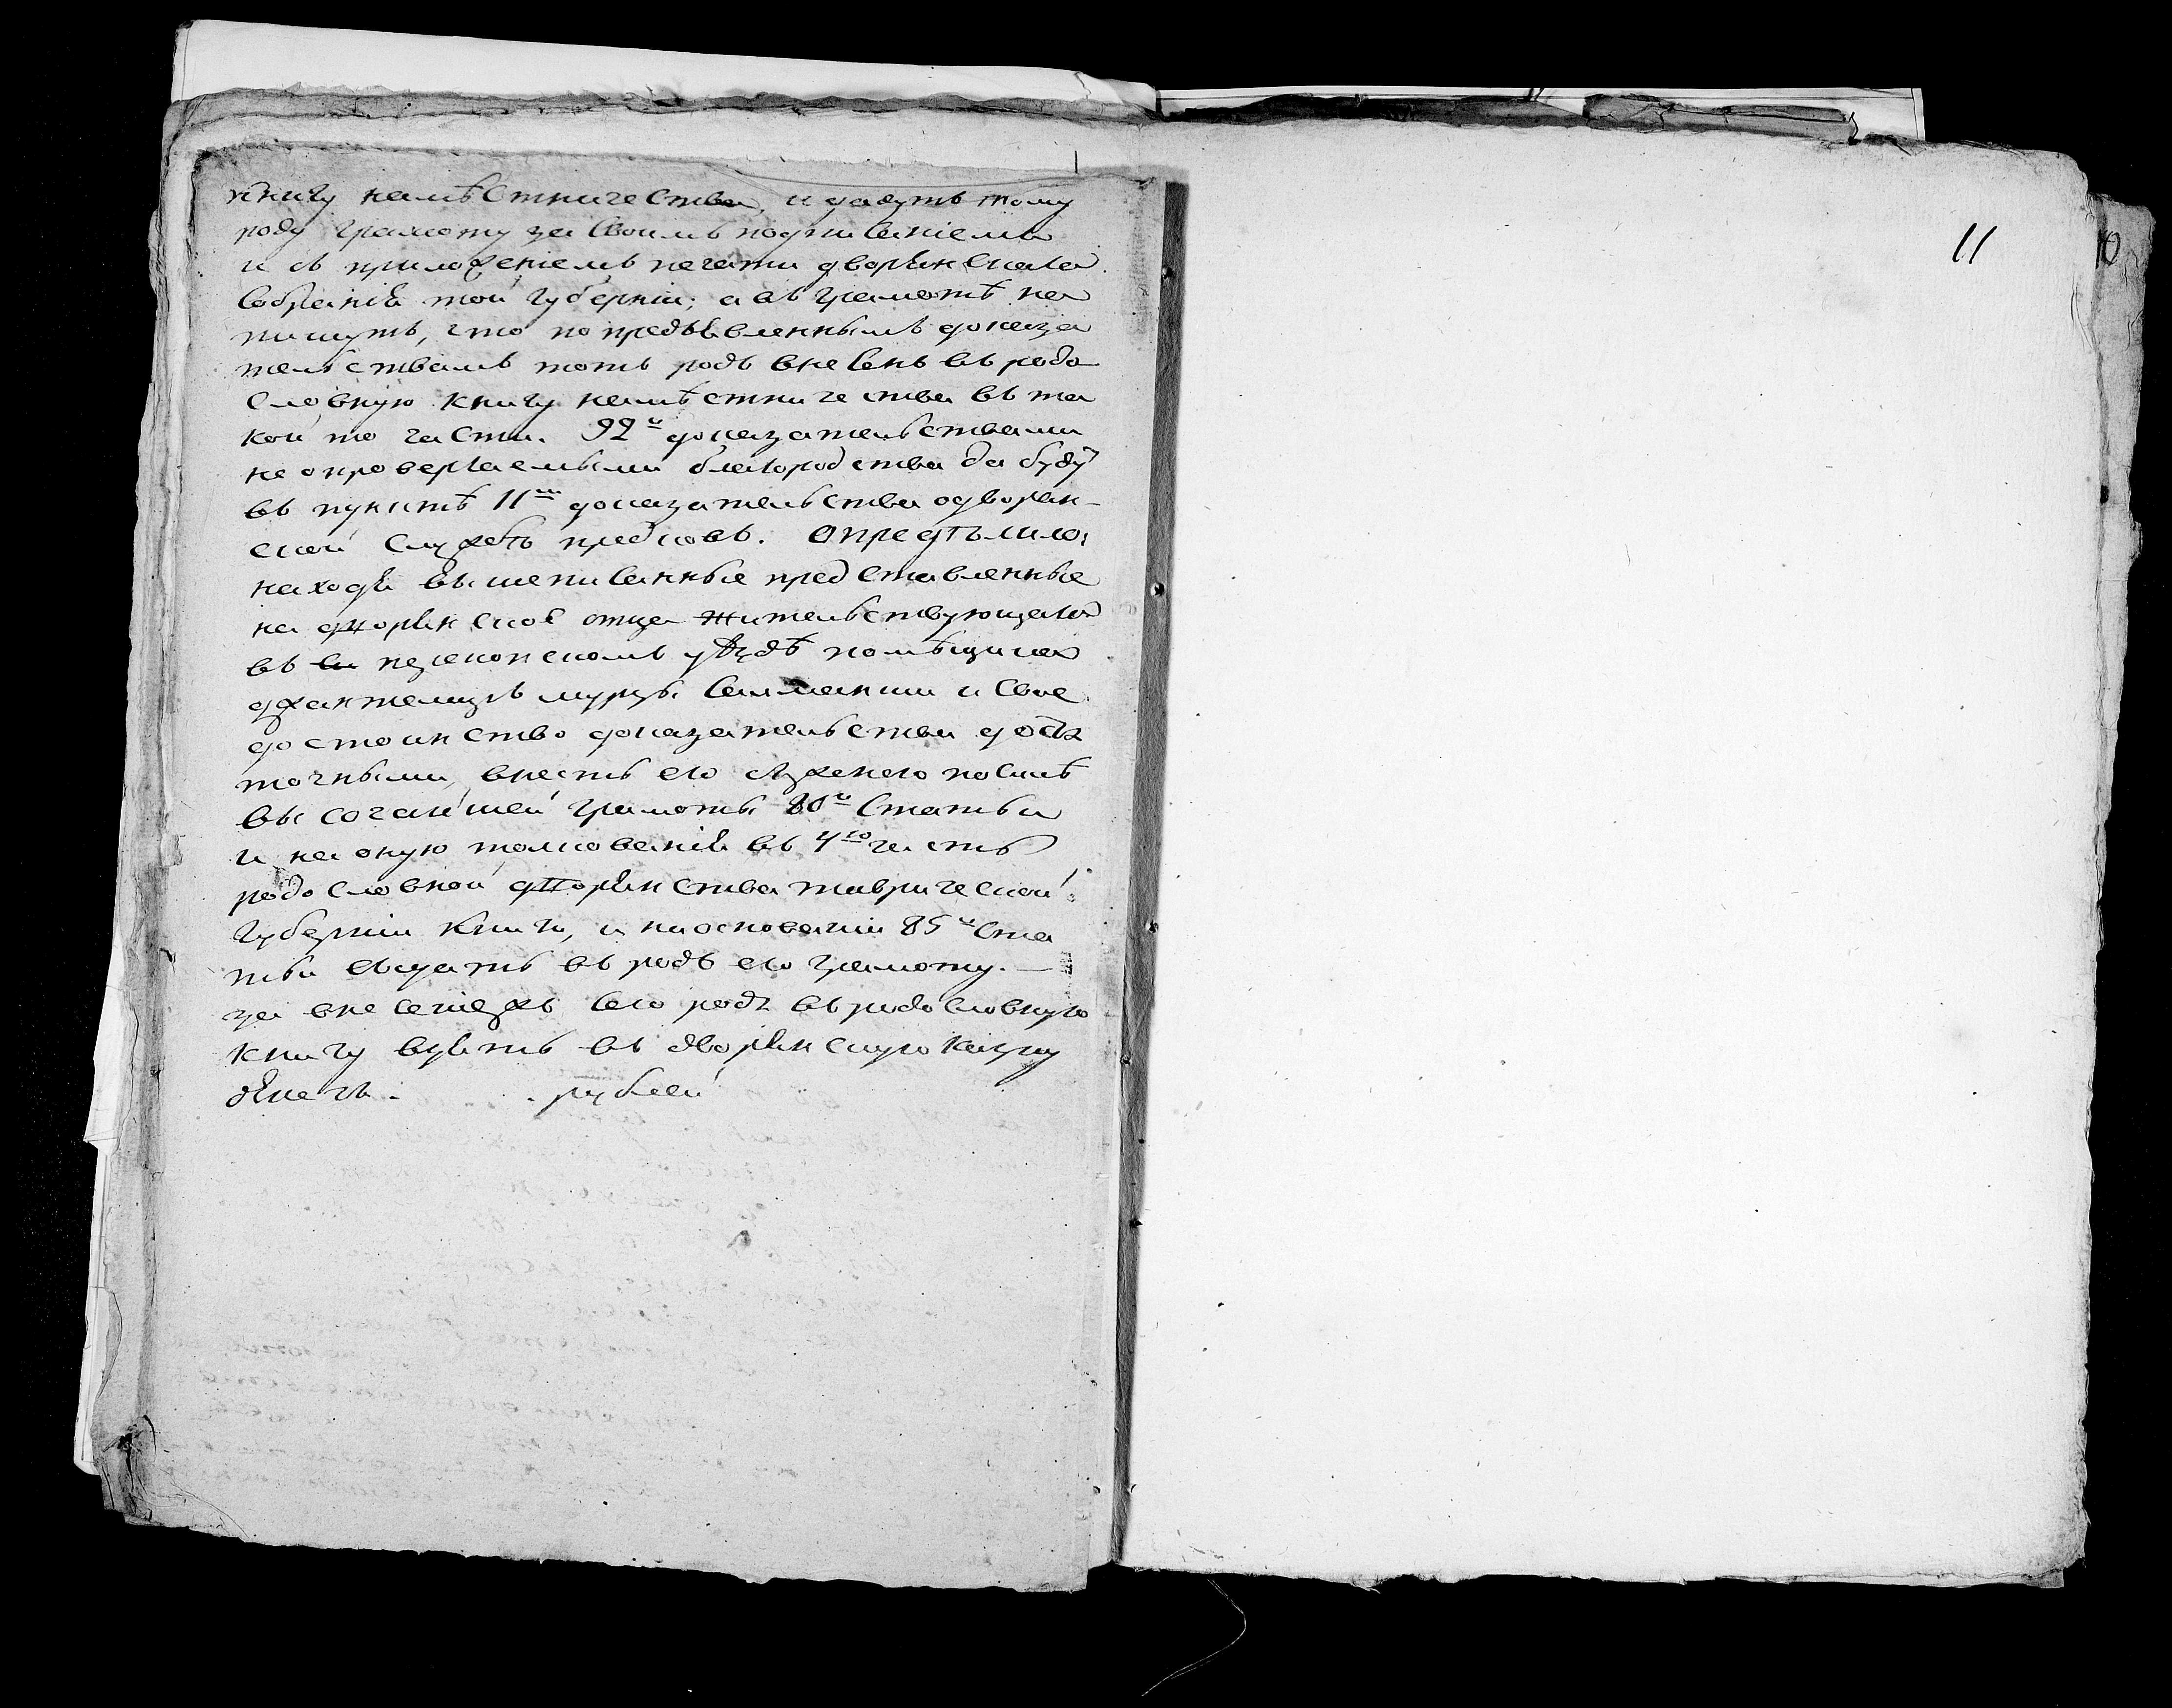 книгу намѣстничества, и дадутъ тому
роду грамоту за своимъ подписаніемъ
и съ приложеніемъ печати дворянскаго
собранія той губерніи; а въ грамотѣ на
пишутъ, что по предъявленнымъ доказа
тельствамъ тотъ родъ внесенъ въ родо
словную книгу намѣстничества въ та
кой то части. 92й доказательствами
неопровергаемыми благородства да буду
въ пунктѣ 11м доказательства о дворян-
ской службѣ предковъ. Опредѣлило:
находя вышеписанныя представленныя
на дворянское отца жительствующаго
въ перекопскомъ уѣздѣ помѣщика
мурзы и свое
достоинство доказательства доста
точными, внесть его по силѣ
высочайшей грамоты 80й статьи
и на оную толкованія въ 4ю часть
родословной дворянства таврической
губерніи книги, и на основаніи 85й ста
тьи выдать въ родъ его грамоту. —
за внесеніежъ сего рода въ родословную
книгу взять въ дворянскую казну
денегъ . . рублей
11
10